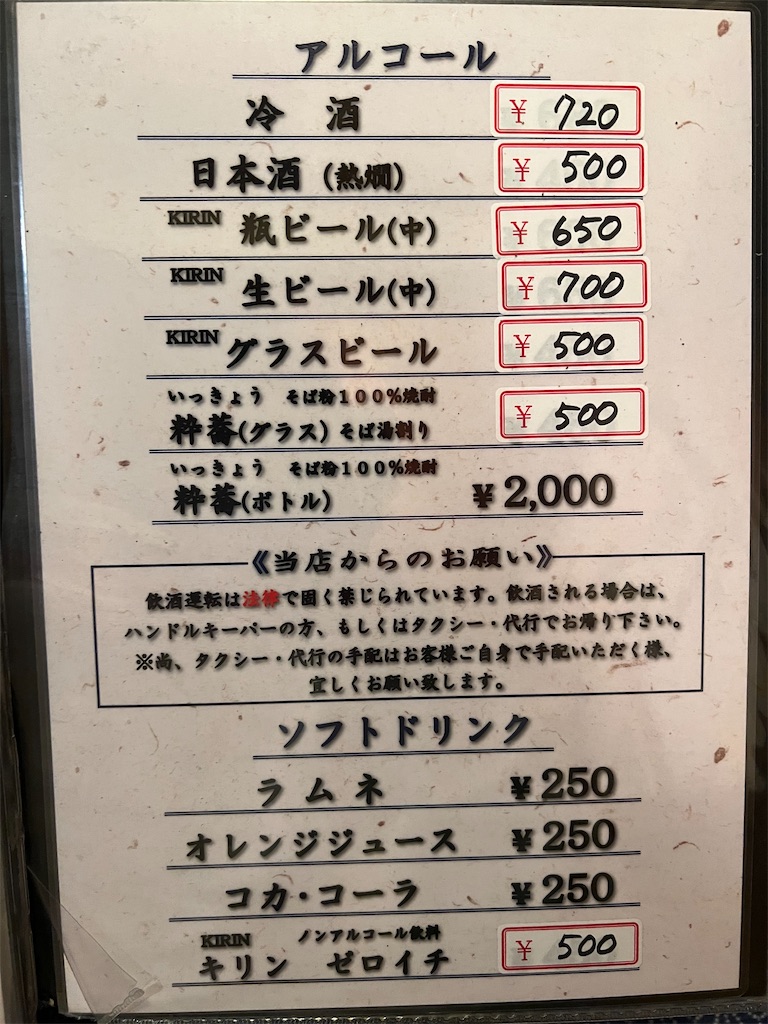 アルコール
冷 酒 ¥ 720
日本酒 (熱燗) ¥ 500
KIRIN 瓶ビール(中) ¥ 650
KIRIN 生ビール(中) ¥ 700
KIRIN グラスビール ¥ 500
いっきょう そば粉100%焼酎
粋蕎(グラス) そば湯割り ¥ 500
いっきょう そば粉100%焼酎
粋蕎(ボトル) ¥2,000
《当店からのお願い》
飲酒運転は法律で固く禁じられています。飲酒される場合は、
ハンドルキーパーの方、もしくはタクシー・代行でお帰り下さい。
※尚、タクシー・代行の手配はお客様ご自身で手配いただく様、
宜しくお願い致します。
ソフトドリンク
ラムネ ¥250
オレンジジュース ¥250
コカ・コーラ ¥250
KIRIN ノンアルコール飲料
キリン ゼロイチ ¥ 500